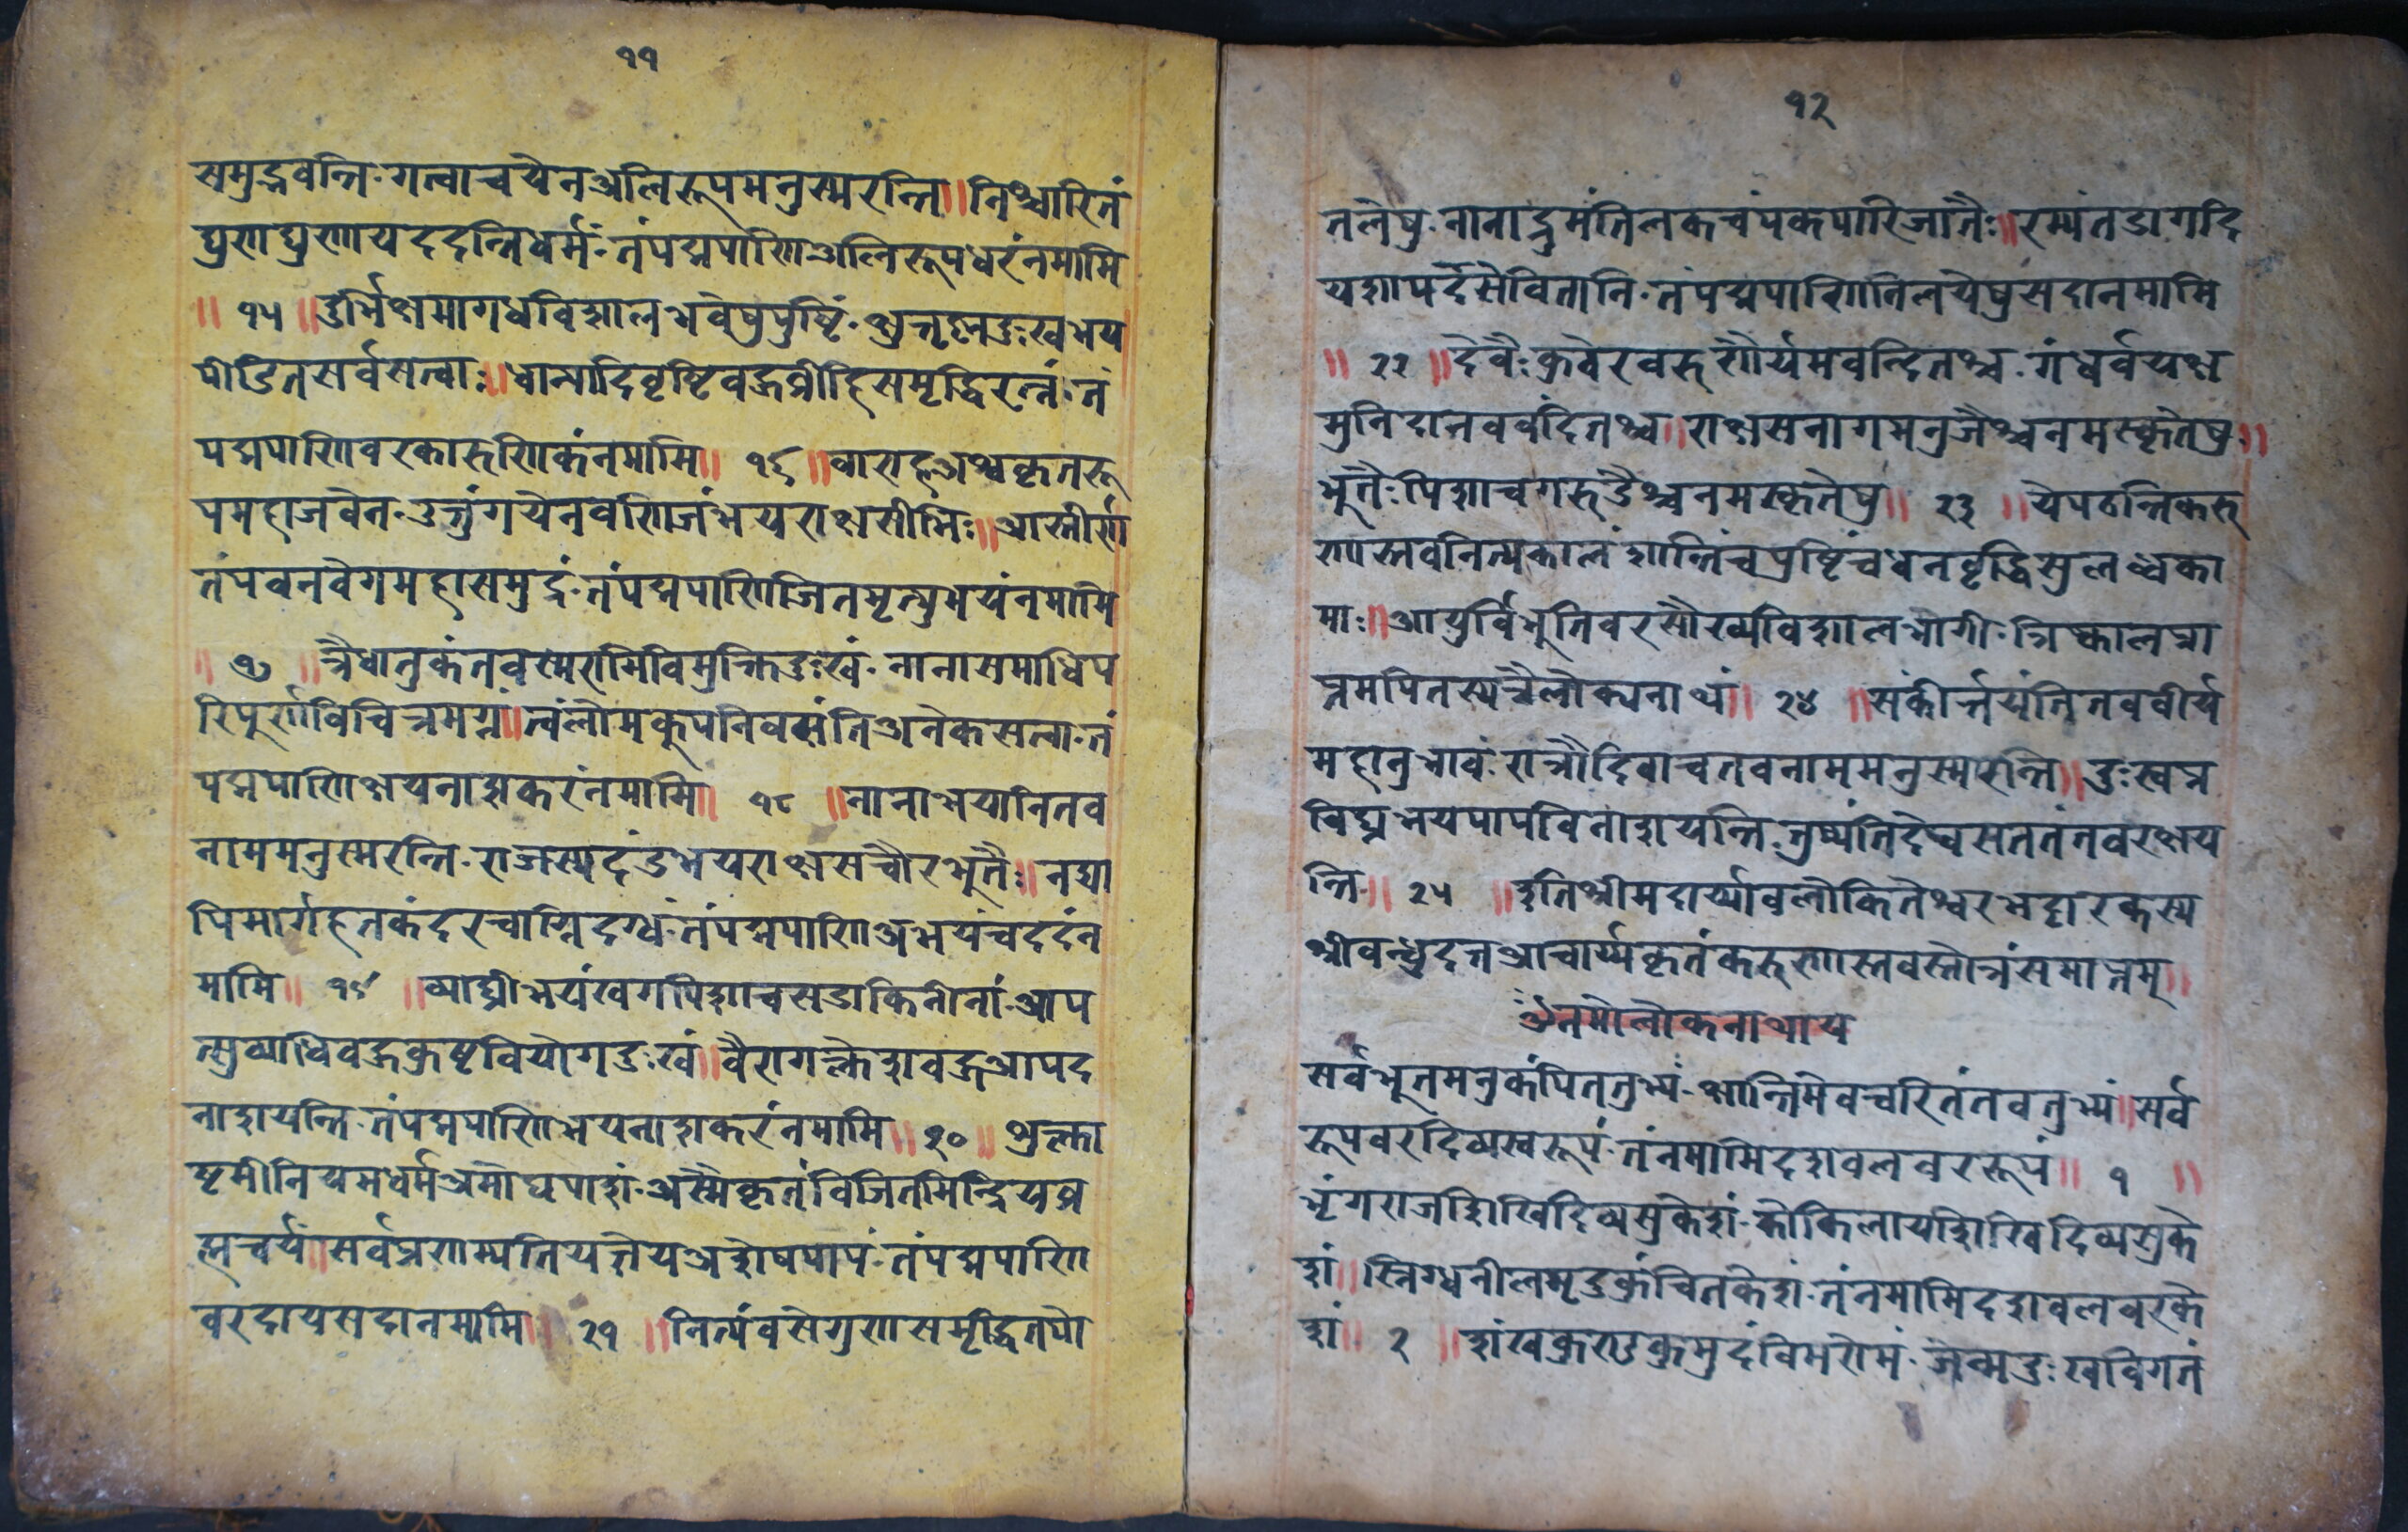 ११
समुद्भवन्ति॰गत्वाचयेनअलिरूपमनुस्मरन्ति॥निश्चारितं
घ्रुणघ्रुणायददन्तिधर्मं॰तंपद्मपाणिअलिरूपधरंनमामि
॥१५॥दुर्भिक्षमागधविशालभवेषुपुष्टिं॰क्षुत्तृष्णदुःखभय
पीडितसर्वसत्वाः॥धान्यादिवृष्टिवहुव्रीहिसमृद्धिरत्नं॰तं
पद्मपाणिवरकारुणिकंनमामि॥१६॥वाराहअश्वकृतरू
पमहाजवेन॰उत्तुंगयेनवणिजंभयराक्षसीभिः॥आस्तीर्ण
तंपवनवेगमहासमुद्रं॰तंपद्मपाणिजितमृत्युभयंनमामि
॥१७॥त्रैधातुकंतवस्मेरामिविमुक्तिदुःखं॰नानासमाधिप
रिपूर्णविचित्रमग्नं॥त्वंलोमकूपनिवसंतिअनेकसत्वा॰तं
पद्मपाणिक्षयनाशकरंनमामि॥१८॥नानाभयानितव
नाममनुस्मरन्ति॰राजस्यदंडभयराक्षसचौरभूतैः॥नद्या
पिमार्गहतकंदरचाग्निदग्धं॰तंपद्मपाणिअभयंचददंन
मामि॥१९॥व्याघ्रीभयंखगपिशाचसडाकिनीनां॰आप
त्सुव्याधिवहुकुष्टवियोगदुःखं॥वैरागल्केशवहुआपद
नाशयन्ति॰तंपद्मपाणिभयनाशकरंनमामि॥२०॥शुल्का
ष्टमीनियमधर्मअमोघपाशं॰अस्मैकृतंविजितमिन्द्रियब्र
ह्मचर्यं॥सर्वप्रणम्यतियत्तेयअशेषपापं॰तंपद्मपाणि
वरदायसदानमामि॥२१॥नित्यंवसेगुणसमृद्धितपो
१२
तलेषु॰नानाद्रुमंतिलकचंपकपारिजातैः॥रम्यंतडागदि
यशापर्दसेवितानि॰तंपद्मपाणिनिलयेषुसदानमामि
॥२२॥देवैःकुवेरवरुणैर्यमवन्दितश्च॰गंधर्वयक्ष
मुनिदानववंदितश्च॥राक्षसनागमनुजैश्चनमस्कृतेषु॥
भूतैःपिशाचगरुडैश्चनमस्कृतेषु॥२३॥येपठन्तिकरु
णास्तवनित्यकालंशान्तिंचपुष्टिंचधनवृद्धिसुलब्धका
माः॥आयुर्विभूतिवरसौख्यविशालभोगी॰त्रिष्कालप्रा
प्नमपितस्यत्रैलोक्यनाथं॥२४॥संकीर्त्तयंतितववीर्य
महानुभावं॰रात्रौदिवाचतवनाममनुस्मरन्ति॥दुःस्वप्न
विघ्नभयपापविनाशयन्ति॰तुष्यंतिदेवसततंतवरक्षय
न्ति॥२५॥इतिश्रीमदार्य्यावलोकितेश्वरभट्टारकस्य
श्रीवन्धुदत्तआचार्य्यकृतंकरुणास्तवस्तोत्रंसमाप्तम्॥
ॐनमोलोकनाथाय
सर्वभूतमनुकंपिततुभ्यं॰क्षान्तिमेवचरितंतवतुभ्यं॥सर्व
रूपवरदिव्यस्वरूपं॰तंनमामिदशवलवररूपं॥१॥
भृंगराजशिखिदिव्यसुकेशं॰कोकिलायशिखिदिव्यसुके
शं॥स्निग्धनीलमृदुकुंचितकेशं॰तंनमामिदशवलवरके
शं॥२॥शंखकुण्डकुमुदंविमरोमं॰जेन्मदुःखविगतं